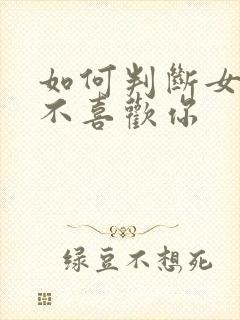 如何判斷女
不喜歡你
绿豆不想死